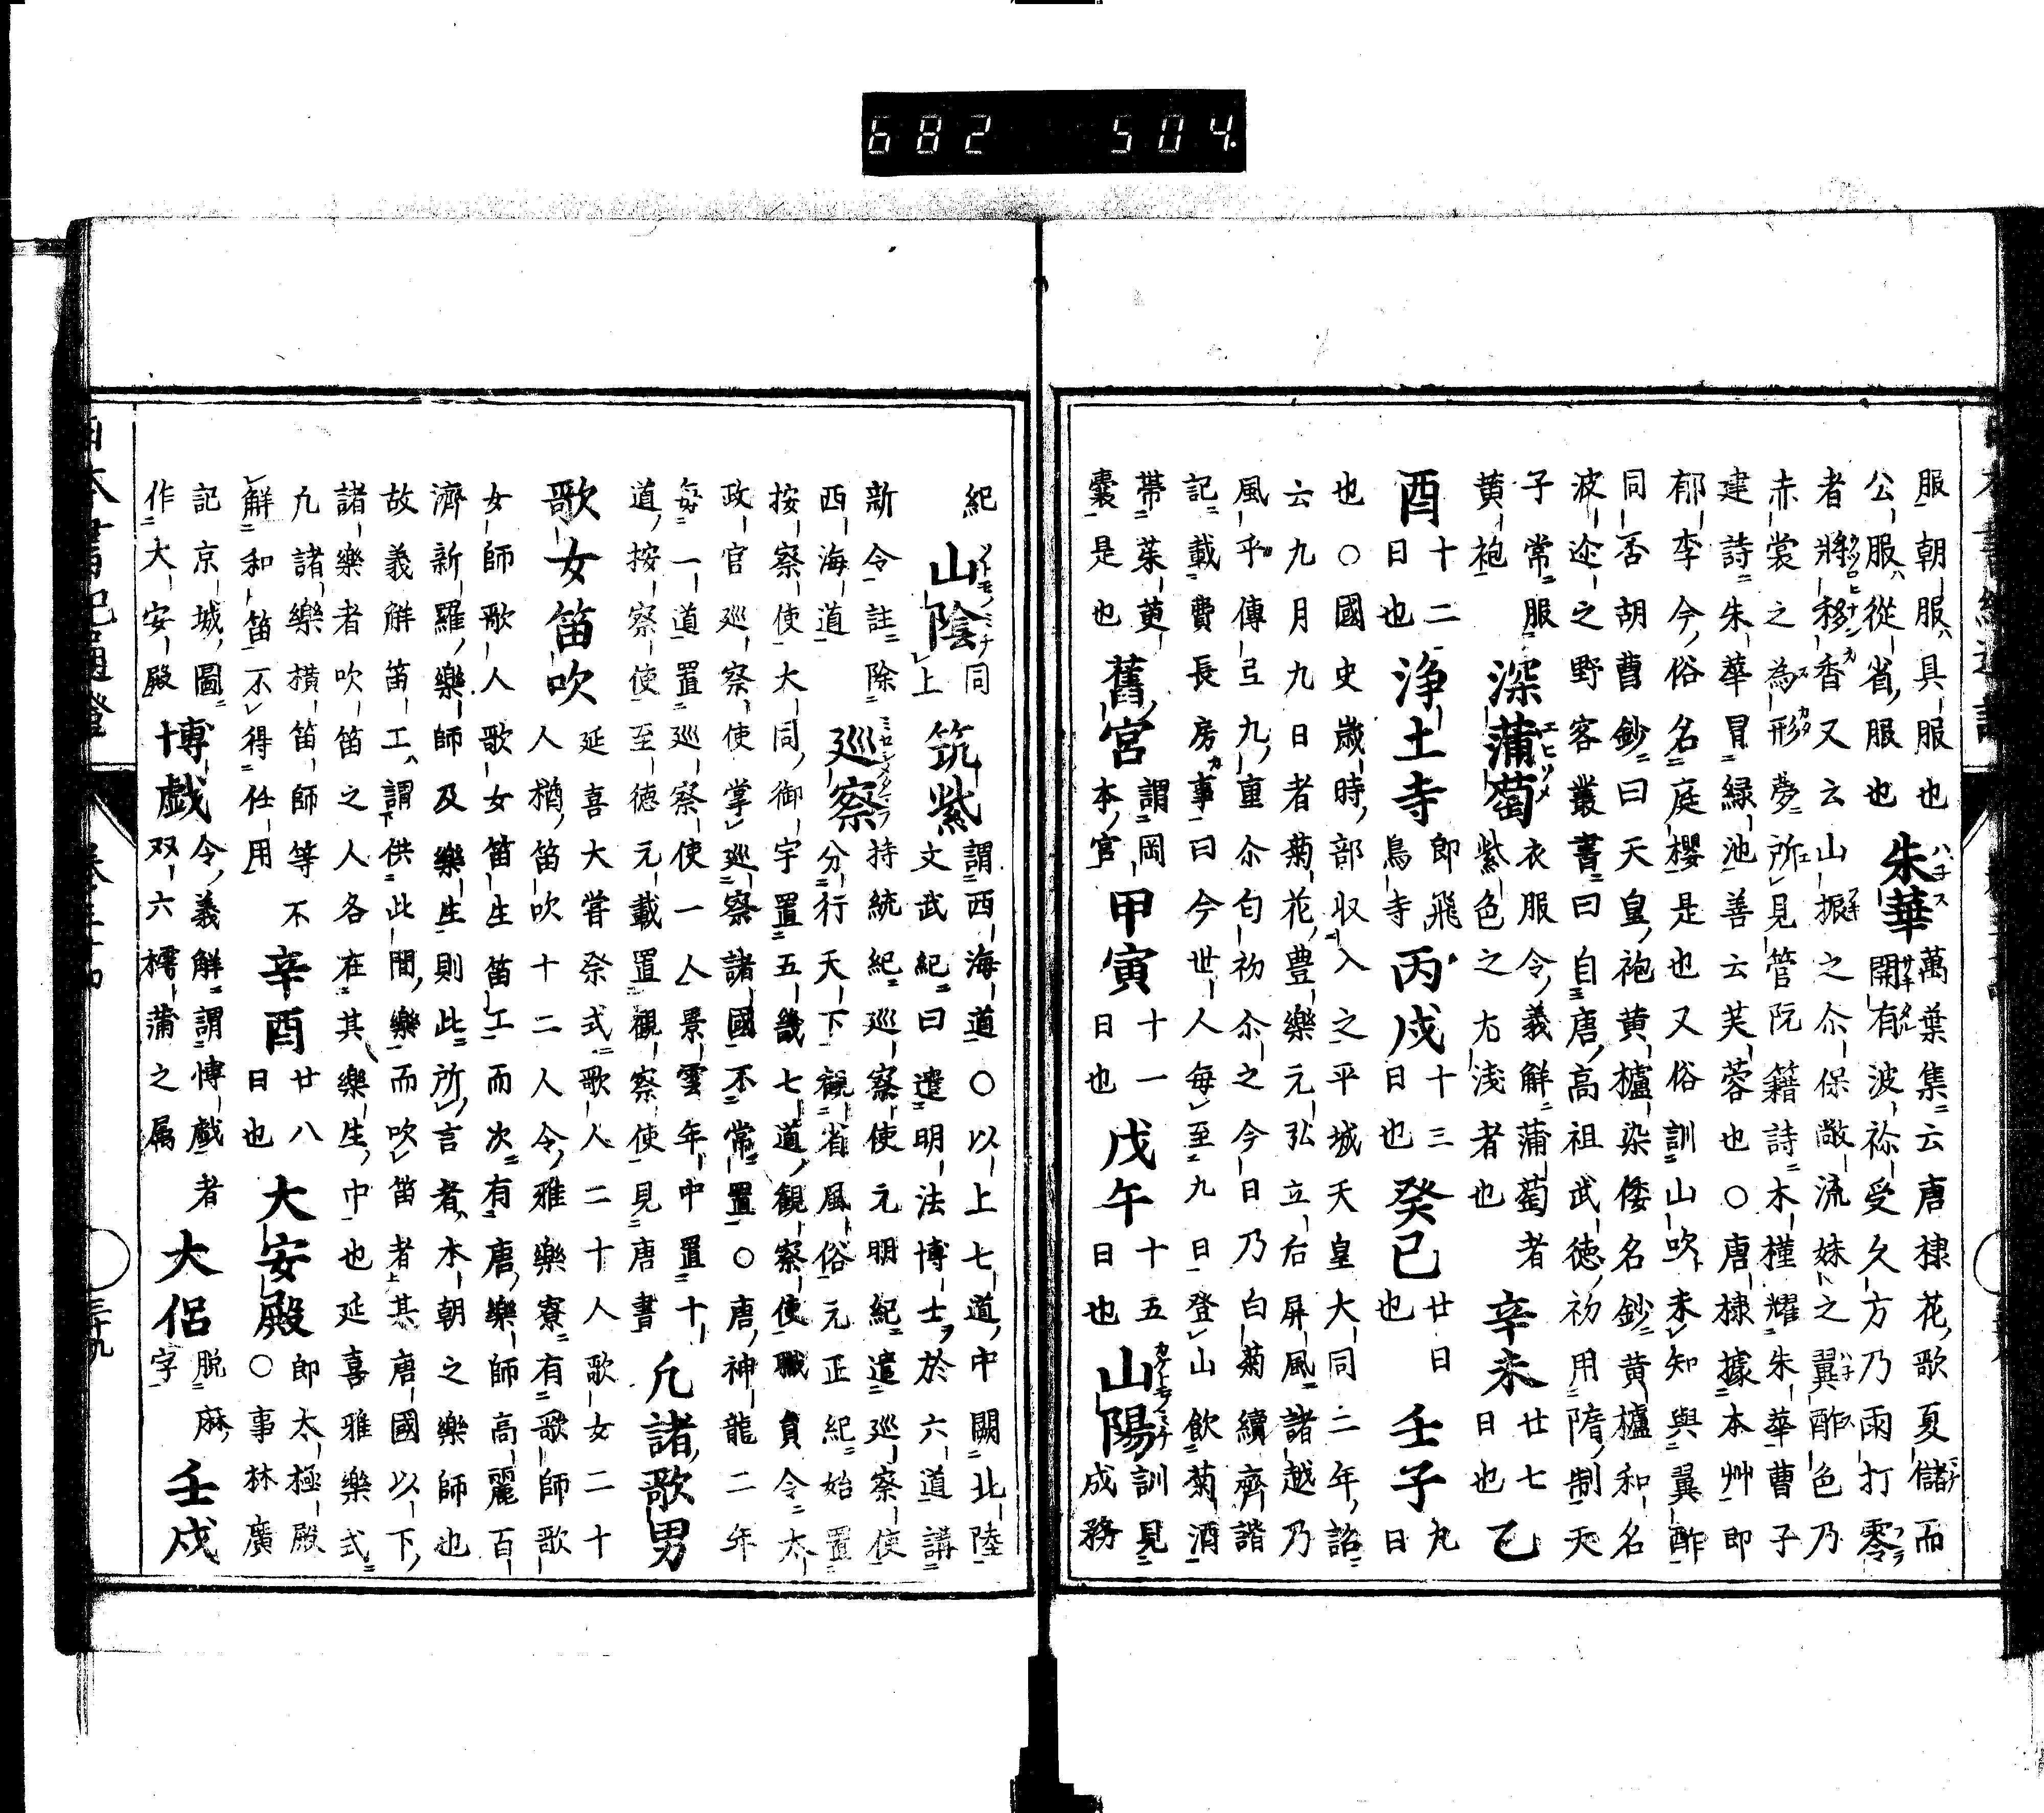 服朝服具服也
公服從省服也
朱華
萬葉集云唐棣花歌夏儲而
開有波祢受久方乃雨打零
者將移香又云山振之尒保敞流妹之翼酢色乃
赤裳之為形夢所見管阮籍詩木槿耀朱華曹子
建詩朱華冒緑池善云芙蓉也○唐棣據本艸即
郁李今俗名庭櫻是也又俗訓山吹未知與翼酢
同否胡曹鈔曰天皇袍黄櫨染倭名鈔黄櫨和名
波迩之野客叢書曰自唐高祖武徳初用隋制天
子常服
黄袍
深蒲萄
衣服令義解蒲萄者
紫色之尤浅者也
辛未
廿七
日也
乙
酉
十二
日也
浄土寺
即飛
鳥寺
丙戌
十三
日也
癸巳
廿日
也
壬子
九
日
也○國史歳時部収入之平城天皇大同二年詔
云九月九日者菊花豊樂元弘立后屏風諸越乃
風乎傳弖九重尒匂初尒之今日乃白菊續齊諧
記載費長房事曰今世人毎至九日登山飲菊酒
帶茱萸
嚢是也
舊宮
謂岡
本宮
甲寅
十一
日也
戊午
十五
日也
山陽
訓見
成務
紀
山陰
同
上
筑紫
謂西海道○以上七道中闕北陸
文武紀曰遣明法博士於六道講
新令註除
西海道
巡察
持統紀巡察使元明紀遣巡察使
分行天下觀省風俗元正紀始置
按察使大同御宇置五畿七道觀察使職員令太
政官巡察使掌巡察諸國不常置○唐神龍二年
毎一道置巡察使一人景雲年中置十
道按察使至徳元載置觀察使見唐書
凡諸歌男
歌女笛吹
延喜大甞祭式歌人二十人歌女二十
人猶笛吹十二人令雅樂寮有歌師歌
女師歌人歌女笛生笛工而次有唐樂師高麗百
濟新羅樂師及樂生則此所言者本朝之樂師也
故義解笛工謂供此間樂而吹笛者其唐國以下
諸樂者吹笛之人各在其樂生中也延喜雅樂式
凡諸樂横笛師等不
解和笛不得任用
辛酉
廿八
日也
大安殿
即太極殿
○事林廣
記京城圖
作大安殿
博戯
令義解謂博戯者
双六樗蒲之属
大侶
脱麻
字
壬戌